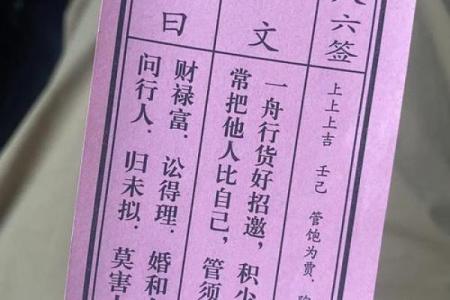 六签
上上上吉 壬己 管饱为贾，
文
一舟行货好招邀，积少
常把他人比自己，管须
曰
财禄富．讼得理．婚和
问行人．归未拟．莫害